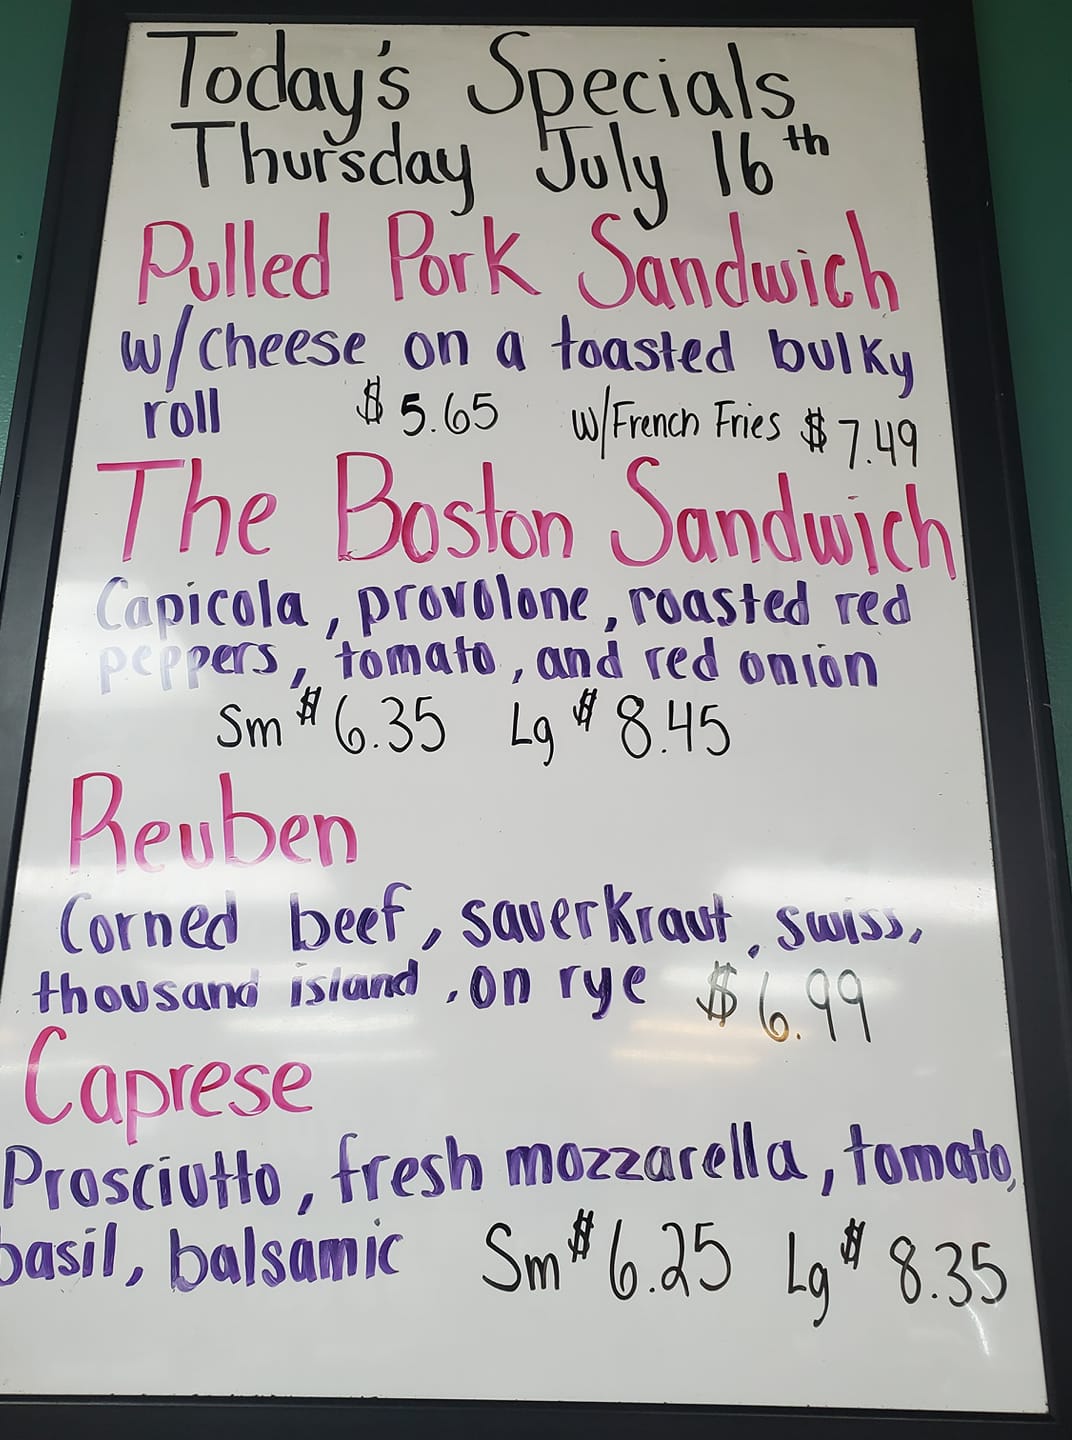 Today's Specials
Thursday July 16th
Pulled Pork Sandwich
w/cheese on a toasted bulky
roll $5.65 w/French Fries $7.49
The Boston Sandwich
Capicola, provolone, roasted red
peppers, tomato, and red onion
Sm $6.35 Lg $8.45
Reuben
Corned beef, sauerkraut, swiss,
thousand island, on rye $6.99
Caprese
Prosciutto, fresh mozzarella, tomato,
basil, balsamic Sm $6.25 Lg $8.35